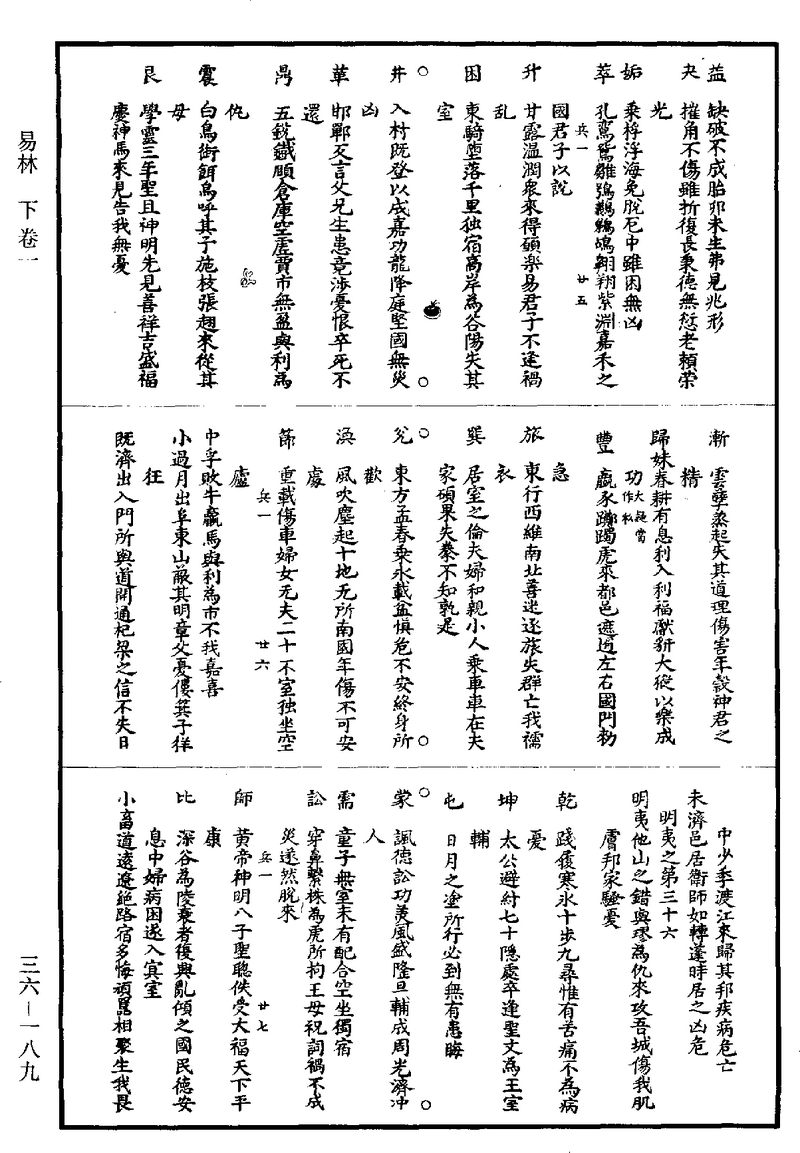 易林 下卷一
三六—一八九
益 缺破不成胎卵未生弗見兆形
夬 摧角不傷雖折復長秉德無愆老賴榮
光
姤 乘桴浮海免脫厄中雖困無凶
萃 孔鸞鴛雛鵷鶵鵜鴣翱翔紫淵嘉禾之
兵一 廿五
國君子以說
升 甘露溫潤衆來得願樂易君子不逢禍
乱
困 東騎墮落千里独宿高岸為谷陽失其
室
井 入村既登以成嘉功龍降庭堅國無災
凶
革 邯鄲反言父兄生患竟涉憂恨卒死不
還
鼎 五銳鐵頤倉庫空虛賈市無盈與利為
仇
震 白鳥銜餌鳥呼其子施枝張翅來從其
母
艮 學靈三年聖且神明先見善祥吉盛福
慶神馬來見告我無憂
漸 雲孽蒸起失其道理傷害年穀神君之
精
歸妹春耕有息利入利福獻豜大豵以樂成
功大疑當作私
豐 羸豕躑躅虎來都邑遮遏左右國門勑
急
旅 東行西維南北善迷逐旅失群亡我襦
衣
巽 居室之倫夫婦和親小人乘車車在夫
家碩果失豢不知孰是
兌 東方孟春乗氷載盆慎危不安終身所
歡
渙 風吹塵起十地无所南國年傷不可安
處
節 重載傷車婦女无夫二十不室独坐空
兵一 廿六
廬
中孚敗牛羸馬與利為市不我嘉喜
小過月出阜東山蔽其明章父憂僂箕子佯
狂
既濟出入門所與道開通杞梁之信不失日
中少季渡江來歸其邦疾病危亡
未濟邑居衛師如轉蓬時居之凶危
明夷之第三十六
明夷他山之錯與璆為仇來攻吾城傷我肌
膚邦家騷憂
乾 踐履寒氷十步九尋惟有苦痛不為病
憂
坤 太公避紂七十隐處卒逢聖文為王室
輔
屯 日月之塗所行必到無有患晦
蒙 諷德訟功羙風盛隆旦輔成周光濟冲
人
需 童子無室未有配合空坐獨宿
訟 穿鼻繫株為虎所拘王母祝詞禍不成
災遂然脫來
兵一 廿七
師 黃帝神明八子聖聰佚受大福天下平
康
比 深谷為陵衰者復興亂傾之國民德安
息中婦病困遂入冥室
小畜道遠遼絶路宿多悔頑嚚相聚生我畏